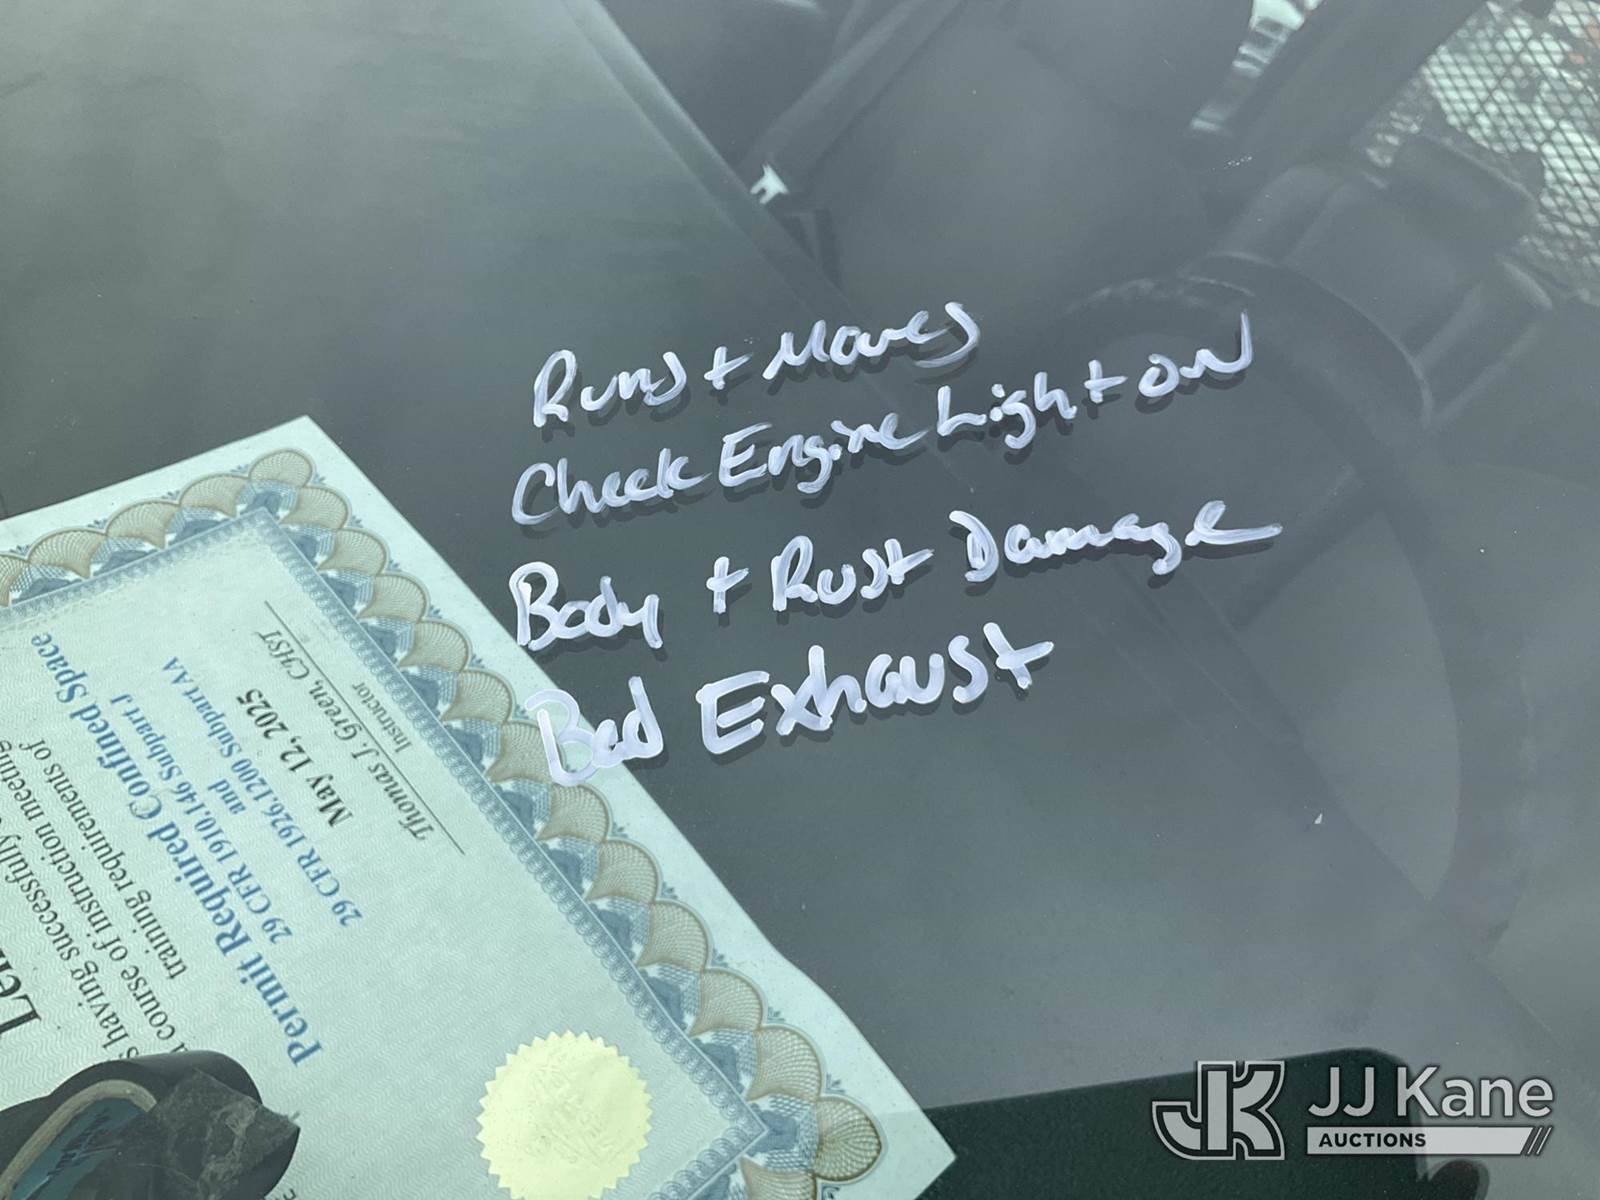 Runs + Moves
Check Engine Light on
Body + Rust Damage
Bad Exhaust
having successfully
course of instruction meeting
training requirements of
Permit Required Confined Space
29 CFR 1910.146 Subpart J
and
29 CFR 1926.1200 Subpart AA
May 12, 2025
Thomas J. Green, CHST
Instructor
JK JJ Kane
AUCTIONS